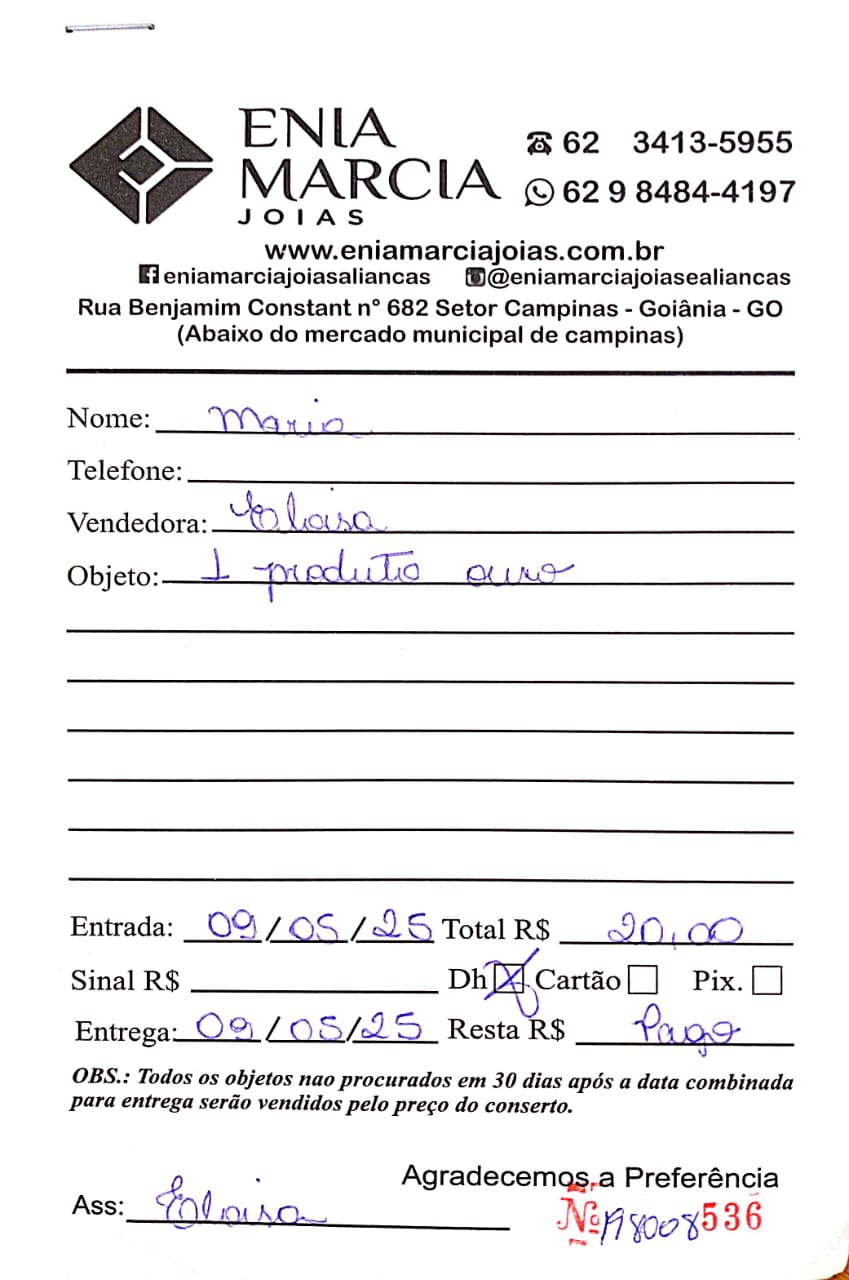 ENIA
MARCIA
JOIAS
62 3413-5955
62 9 8484-4197
www.eniamarciajoias.com.br
eniamarciajoiasaliancas @eniamarciajoiasealiancas
Rua Benjamim Constant n° 682 Setor Campinas - Goiânia - GO
(Abaixo do mercado municipal de campinas)
Nome: Maria
Telefone:
Vendedora: Eloisa
Objeto: 1 produtio ouro
Entrada: 09/05/25 Total R$ 20,00
Sinal R$ Dh X Cartão Pix.
Entrega: 09/05/25 Resta R$ Pago
OBS.: Todos os objetos nao procurados em 30 dias após a data combinada
para entrega serão vendidos pelo preço do conserto.
Agradecemos a Preferência
Ass: Eloisa
Nº 198008536